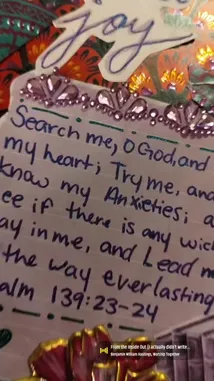 joy
Search me, O God, and
my heart; Try me, and
know my Anxieties; a
ee if there is any wick
ay in me, and Lead m
the way everlasting
alm 139:23-24
From the Inside Out (I actually didn't write...
Benjamin William Hastings, Worship Together